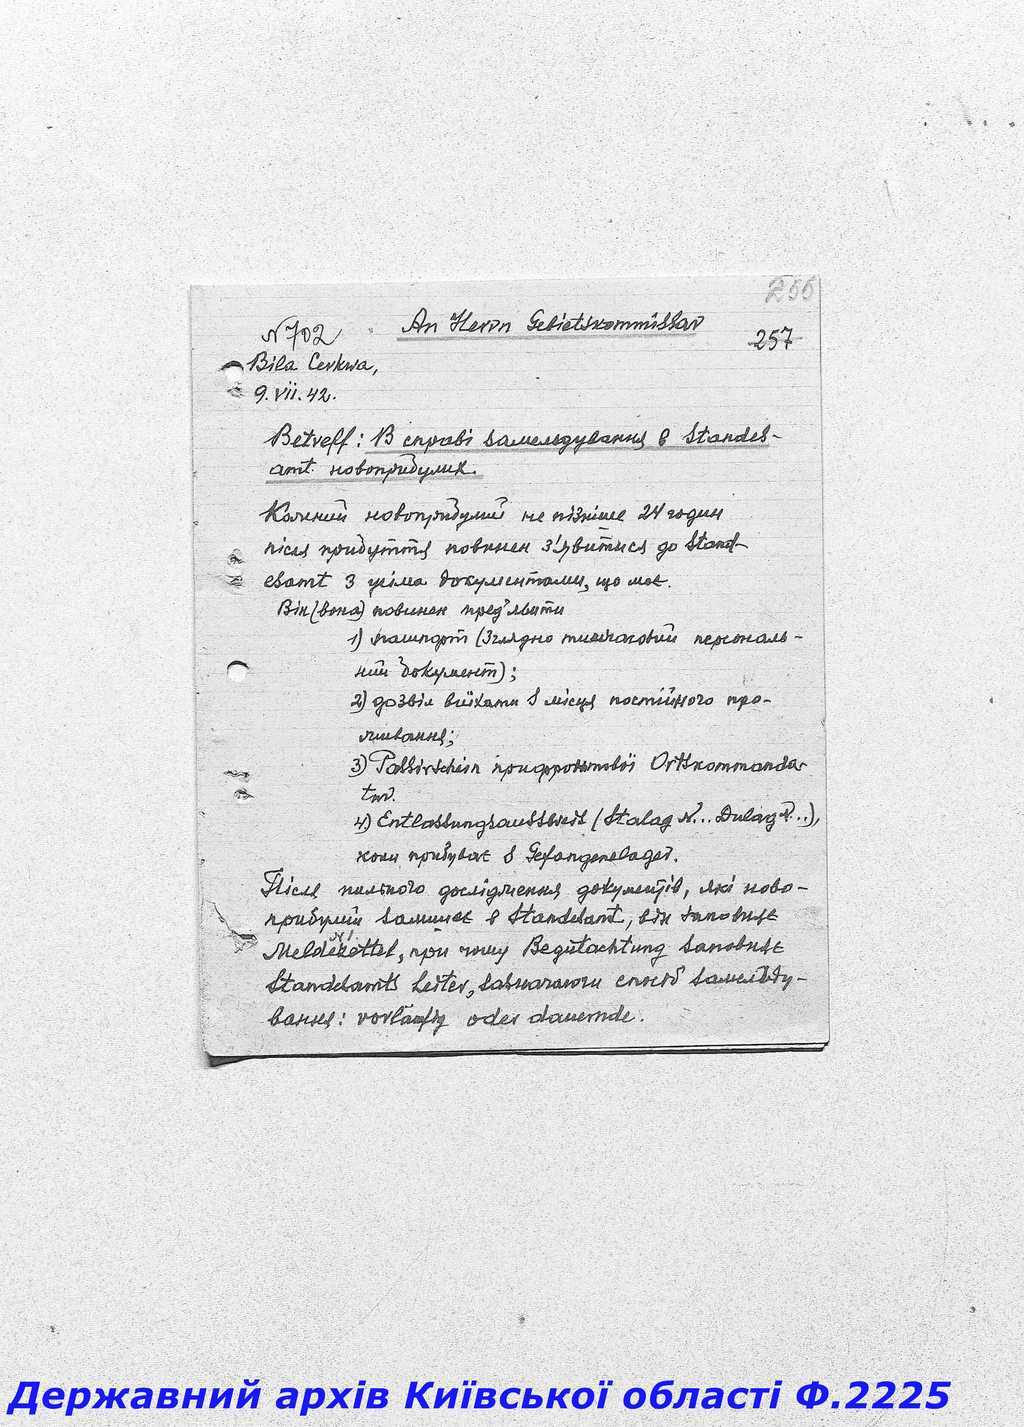 255
N 702 An Herrn Gebietskommissar
257
Bila Cerkwa,
9.VII.42.
Betreff: В справі замельдування в Standes-
amt новоприбулих.
Кожний новоприбулий не пізніше 24 годин
після прибуття повинен з'явитися до Stand-
esamt з усіма документами, що має.
Він (вона) повинен пред'явити
1) пашпорт (зглядно тимчасовий персональ-
ний документ);
2) дозвіл виїхати з місця постійного про-
живання;
3) Passirschein прифронтової Ortskommanda-
tur.
4) Entlassungsausweis (Stalag N... Dulag N...),
коли прибуває з Gefangenelager.
Після пильного дослідження документів, які ново-
прибулий залишає в Standesamt, він заповнює
Meldezettel, при чому Begutachtung заповнює
Standesamts Leiter, зазначаючи спосіб замельду-
вання: vorläufig oder dauernde.
Державний архів Київської області Ф.2225